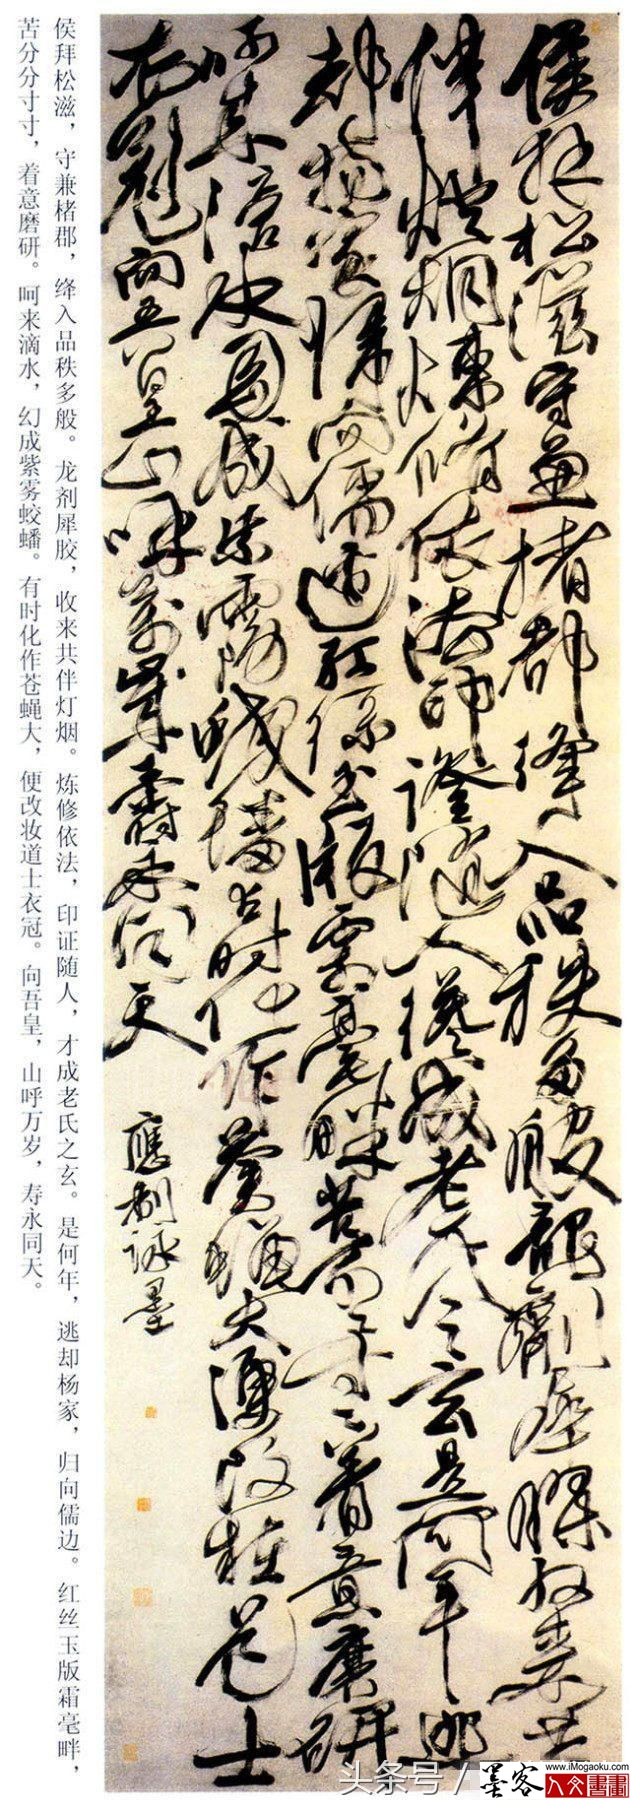 侯拜松滋守兼楮郡絳入品秩多般龍劑犀膠收來共
伴燈烟煉修依法印證隨人纔成老氏之玄是何年逃
却楊家歸向儒邊紅絲玉版霜毫畔苦分分寸寸着意磨研
呵來滴水幻成紫霧蛟蟠有時化作蒼蠅大便改粧道士
衣冠向吾皇山呼萬歲壽永同天
應制詠墨
侯拜松滋，守兼楮郡，绛入品秩多般。龙剂犀胶，收来共伴灯烟。炼修依法，印证随人，才成老氏之玄。是何年，逃却杨家，归向儒边。红丝玉版霜毫畔，
苦分分寸寸，着意磨研。呵来滴水，幻成紫雾蛟蟠。有时化作苍蝇大，便改妆道士衣冠。向吾皇，山呼万岁，寿永同天。
头条号 / 墨客
www.iMogaoku.com